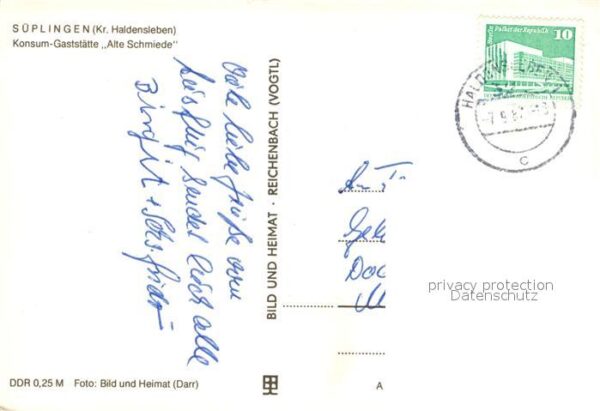 SÜPLINGEN (Kr. Haldensleben)
Konsum-Gaststätte „Alte Schmiede"
Viele liebe Grüße vom
Ausflug sendet Euch alle
Birgit +
BILD UND HEIMAT · REICHENBACH (VOGTL)
Berlin Palast der Republik
10
DEUTSCHE DEMOKRATISCHE REPUBLIK
HALDENSLEBEN
-7.9.82-
c
privacy protection
Datenschutz
DDR 0,25 M Foto: Bild und Heimat (Darr)
A